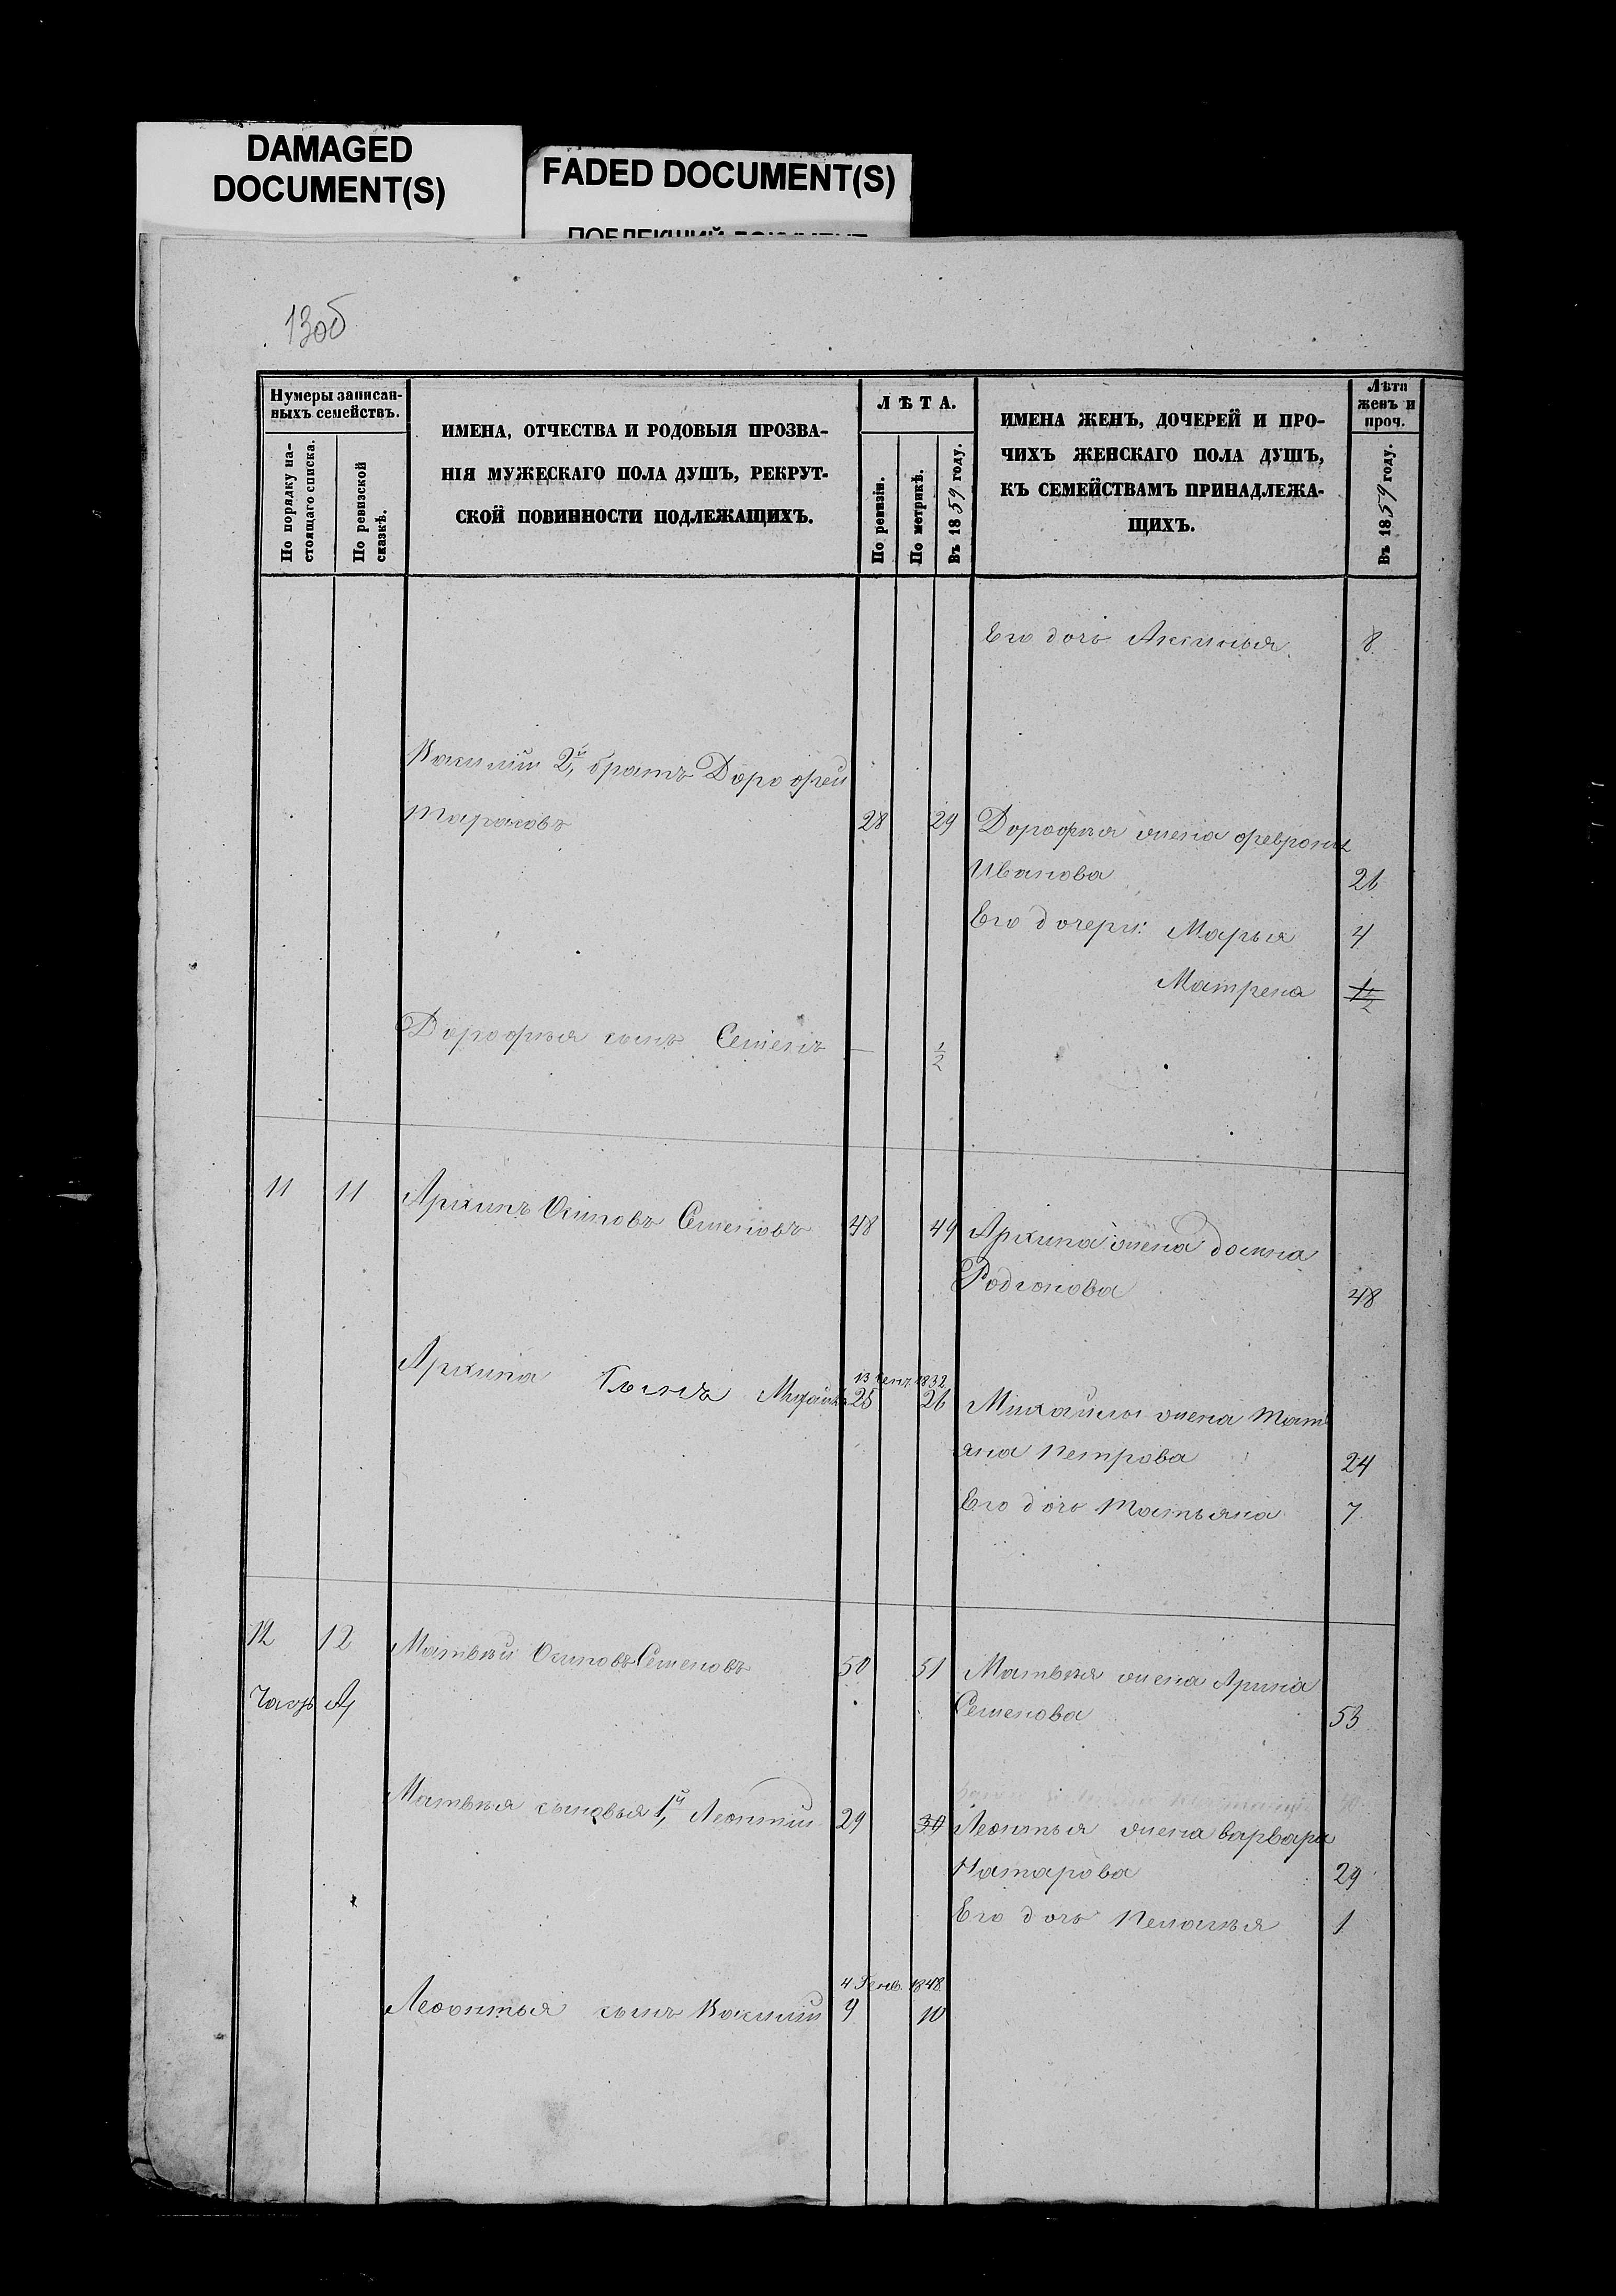 DAMAGED
DOCUMENT(S)
FADED DOCUMENT(S)
ПОБЛЕКШИЙ ДОКУМЕНТ
13об
Нумеры записан-
ныхъ семействъ.
По порядку на-
стоящаго списка.
По ревизской
сказкѣ.
ИМЕНА, ОТЧЕСТВА И РОДОВЫЯ ПРОЗВА-
НІЯ МУЖЕСКАГО ПОЛА ДУШЪ, РЕКРУТ-
СКОЙ ПОВИННОСТИ ПОДЛЕЖАЩИХЪ.
ЛѢТА.
По ревизіи.
По метрикѣ.
Въ 1859 году.
ИМЕНА ЖЕНЪ, ДОЧЕРЕЙ И ПРО-
ЧИХЪ ЖЕНСКАГО ПОЛА ДУШЪ,
КЪ СЕМЕЙСТВАМЪ ПРИНАДЛЕЖА-
ЩИХЪ.
Лѣта
женъ и
проч.
Въ 1859 году.
Его дочь Аксинья 8
Василій 2й братъ Дорофей
Тарасовъ 28 29
Дорофея жена Февронья
Иванова 26
Его дочери: Марья 4
Матрена 1/2
Дорофея сынъ Семенъ — 1/2
11 11 Архипъ Осиповъ Семеновъ 48 49
Архипа жена Домна
Родионова 48
13 Сент. 1832
Архипа Сынъ Михайла 25 26
Михайлы жена Тать
яна Петрова 24
Его дочь Татьяна 7
12 12 Матвей Осиповъ Семеновъ 50 51
Матвея жена Арина
Семенова 53
Матвея сыновья 1й Леонтий 29 30
Леонтья жена Варвара
Натарова 29
Его дочь Пелагья 1
4 Генв. 1848
Леонтья сынъ Василий 9 10